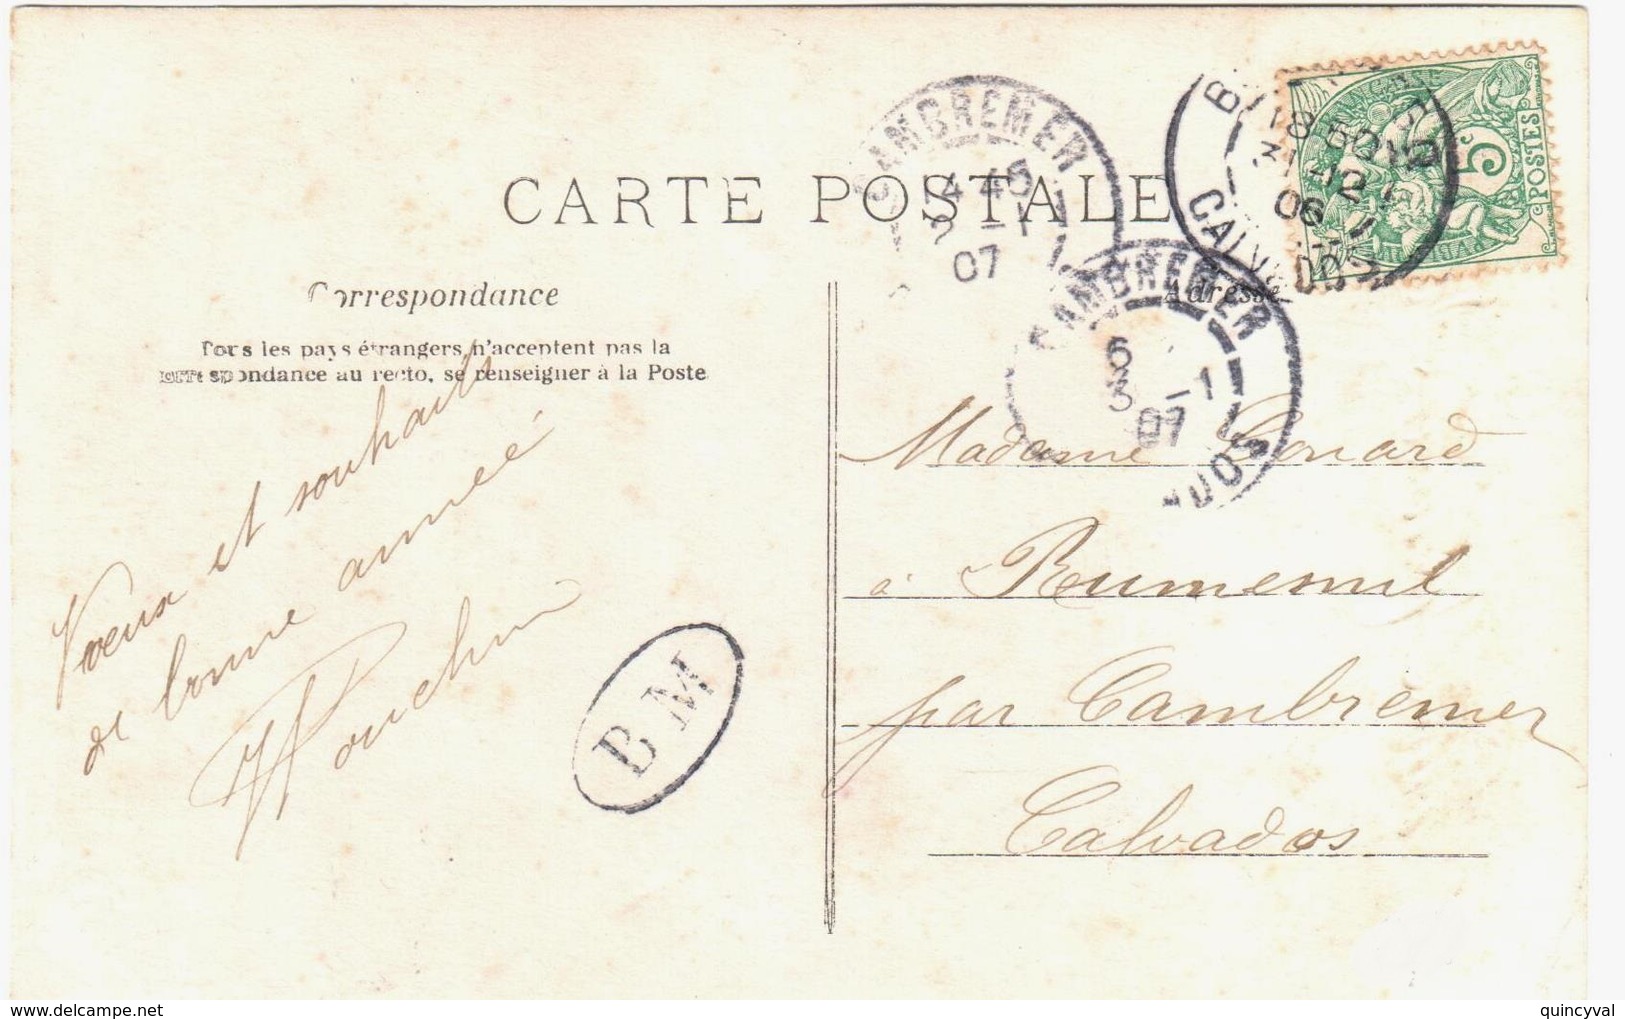 CARTE POSTALE
Correspondance
Tous les pays étrangers n'acceptent pas la
correspondance au recto, se renseigner à la Poste
Adresse
CAMBREMER
4 45
2 -1
07
CAMBREMER
6
3 -1
07
ADOS
CALVADOS
18 50
31 12
06
5c
POSTES
Voeux et souhaits
de bonne année
B M
Madame Conard
à Rumesnil
par Cambremer
Calvados
quincyval